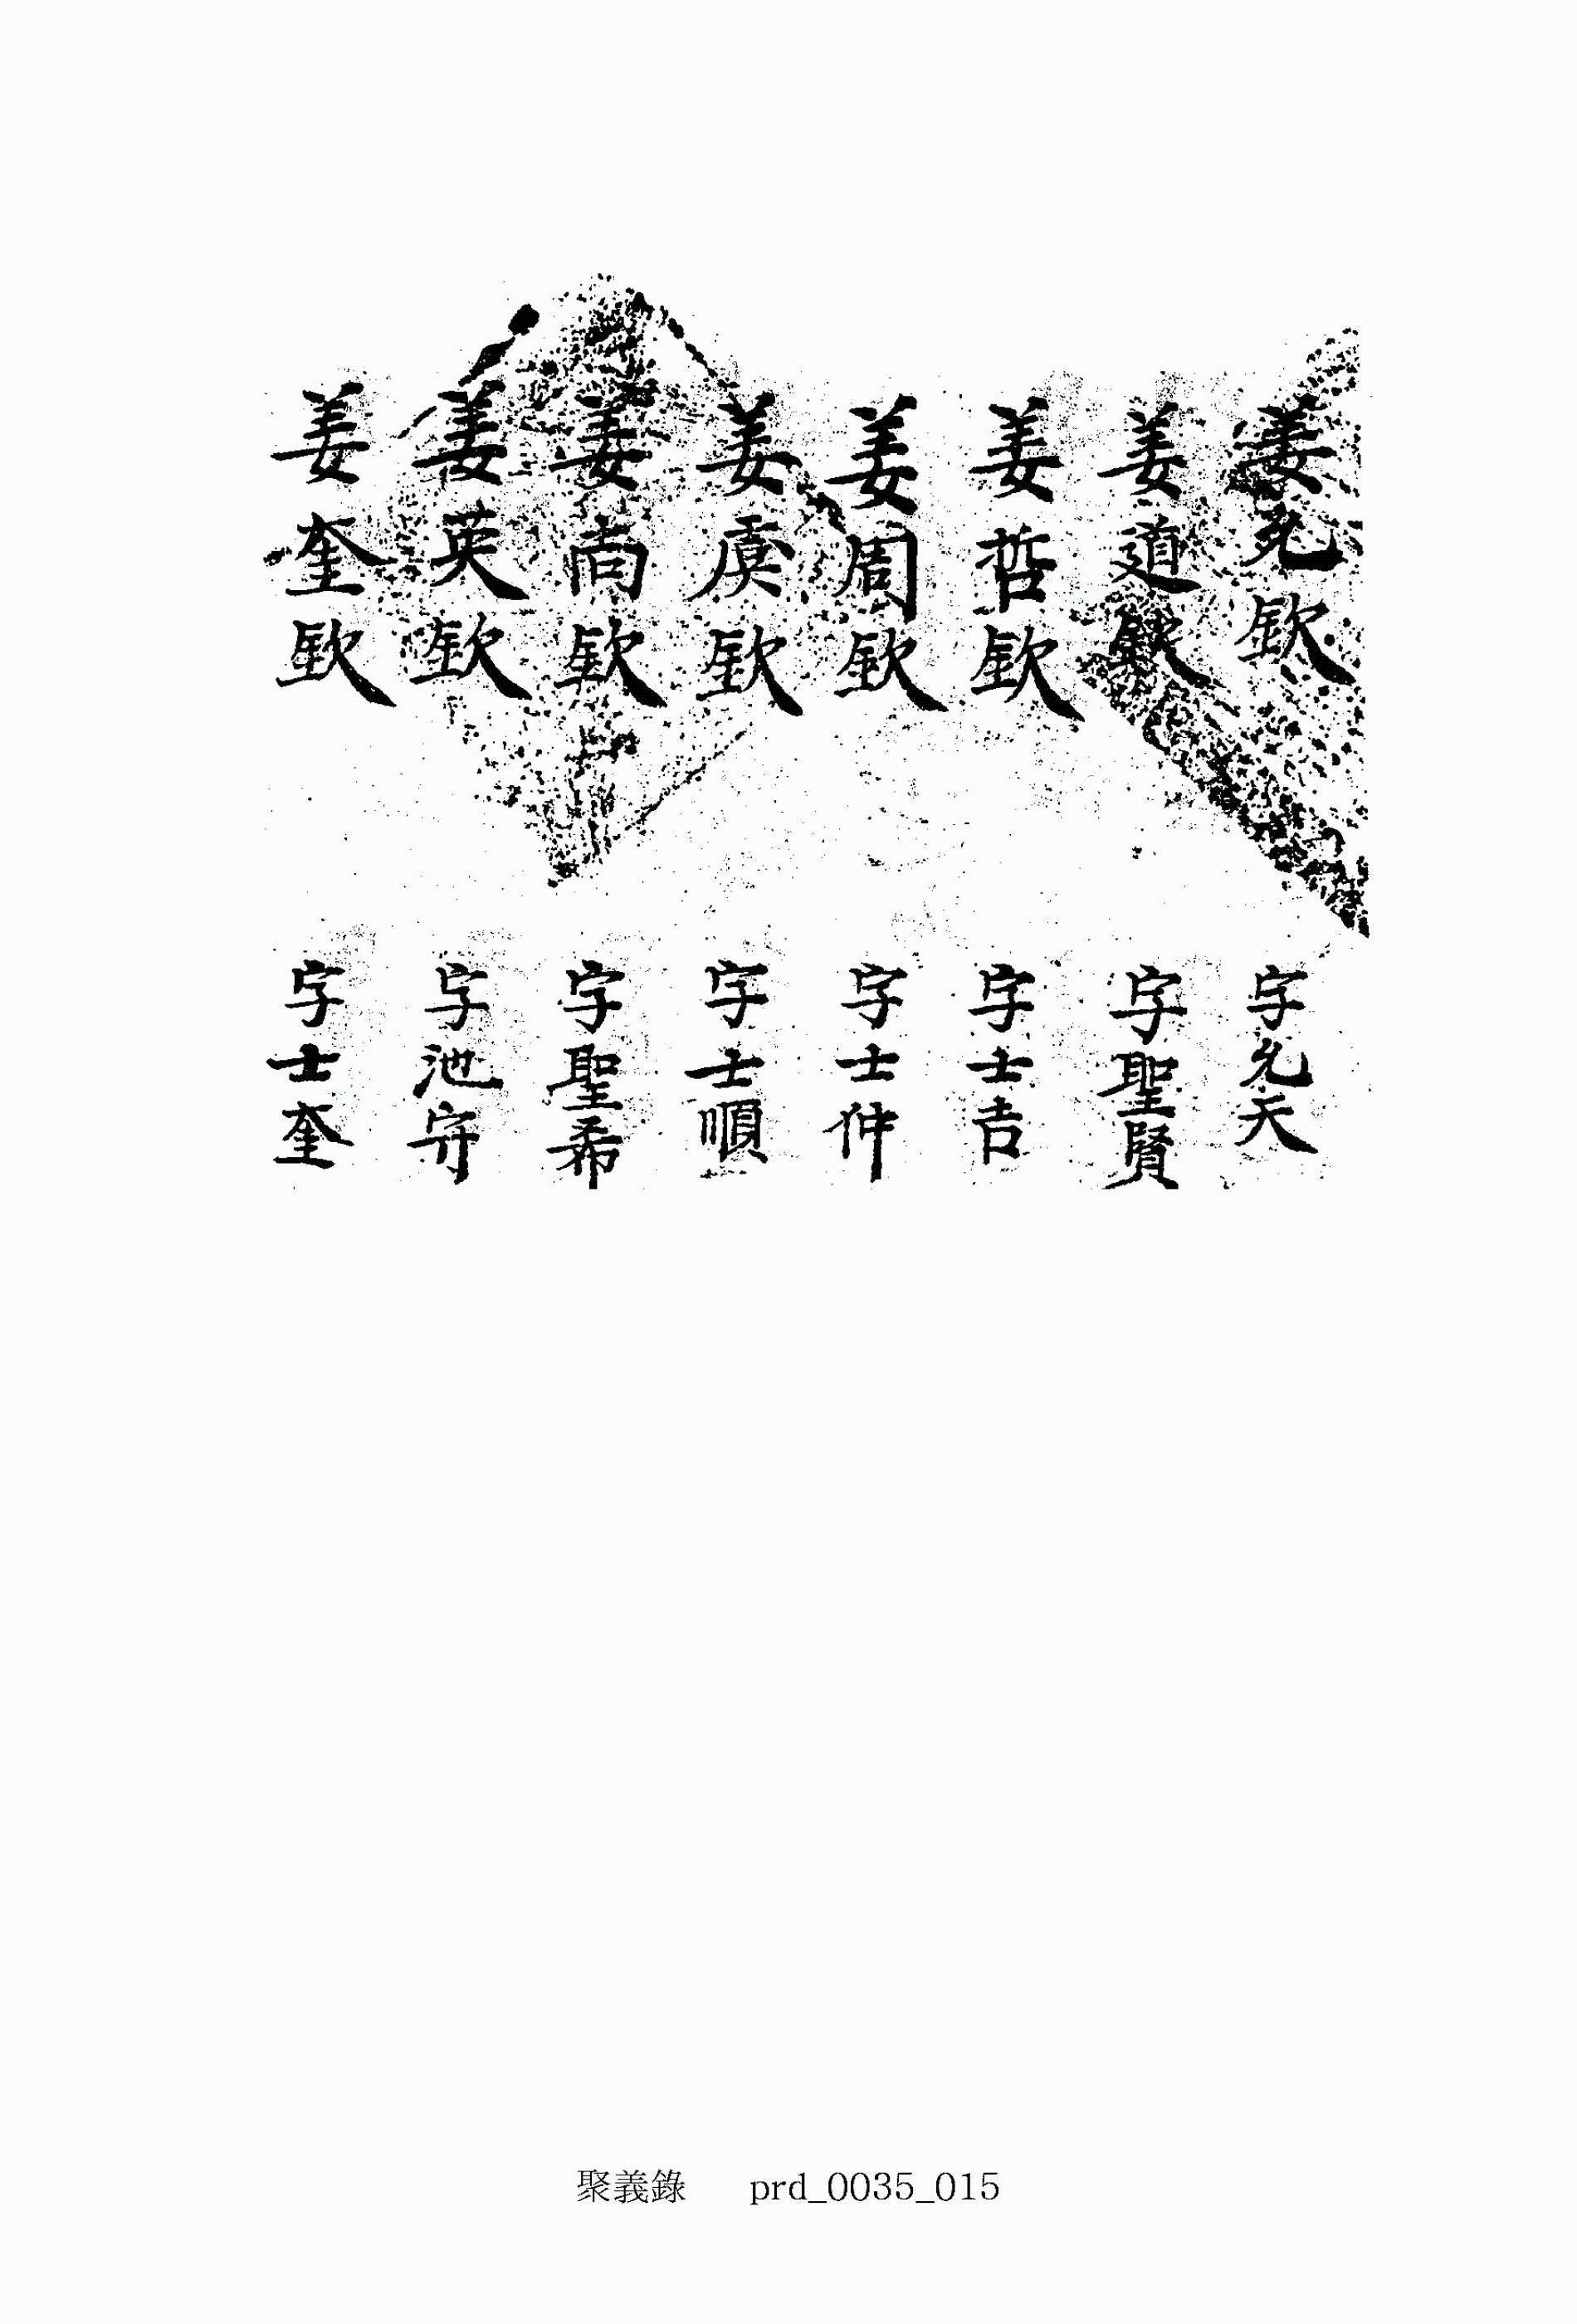 姜允欽 字允天
姜道欽 字聖賢
姜哲欽 字士吉
姜周欽 字士仲
姜虞欽 字士順
姜尚欽 字聖希
姜英欽 字池守
姜奎欽 字士奎
聚義錄 prd_0035_015